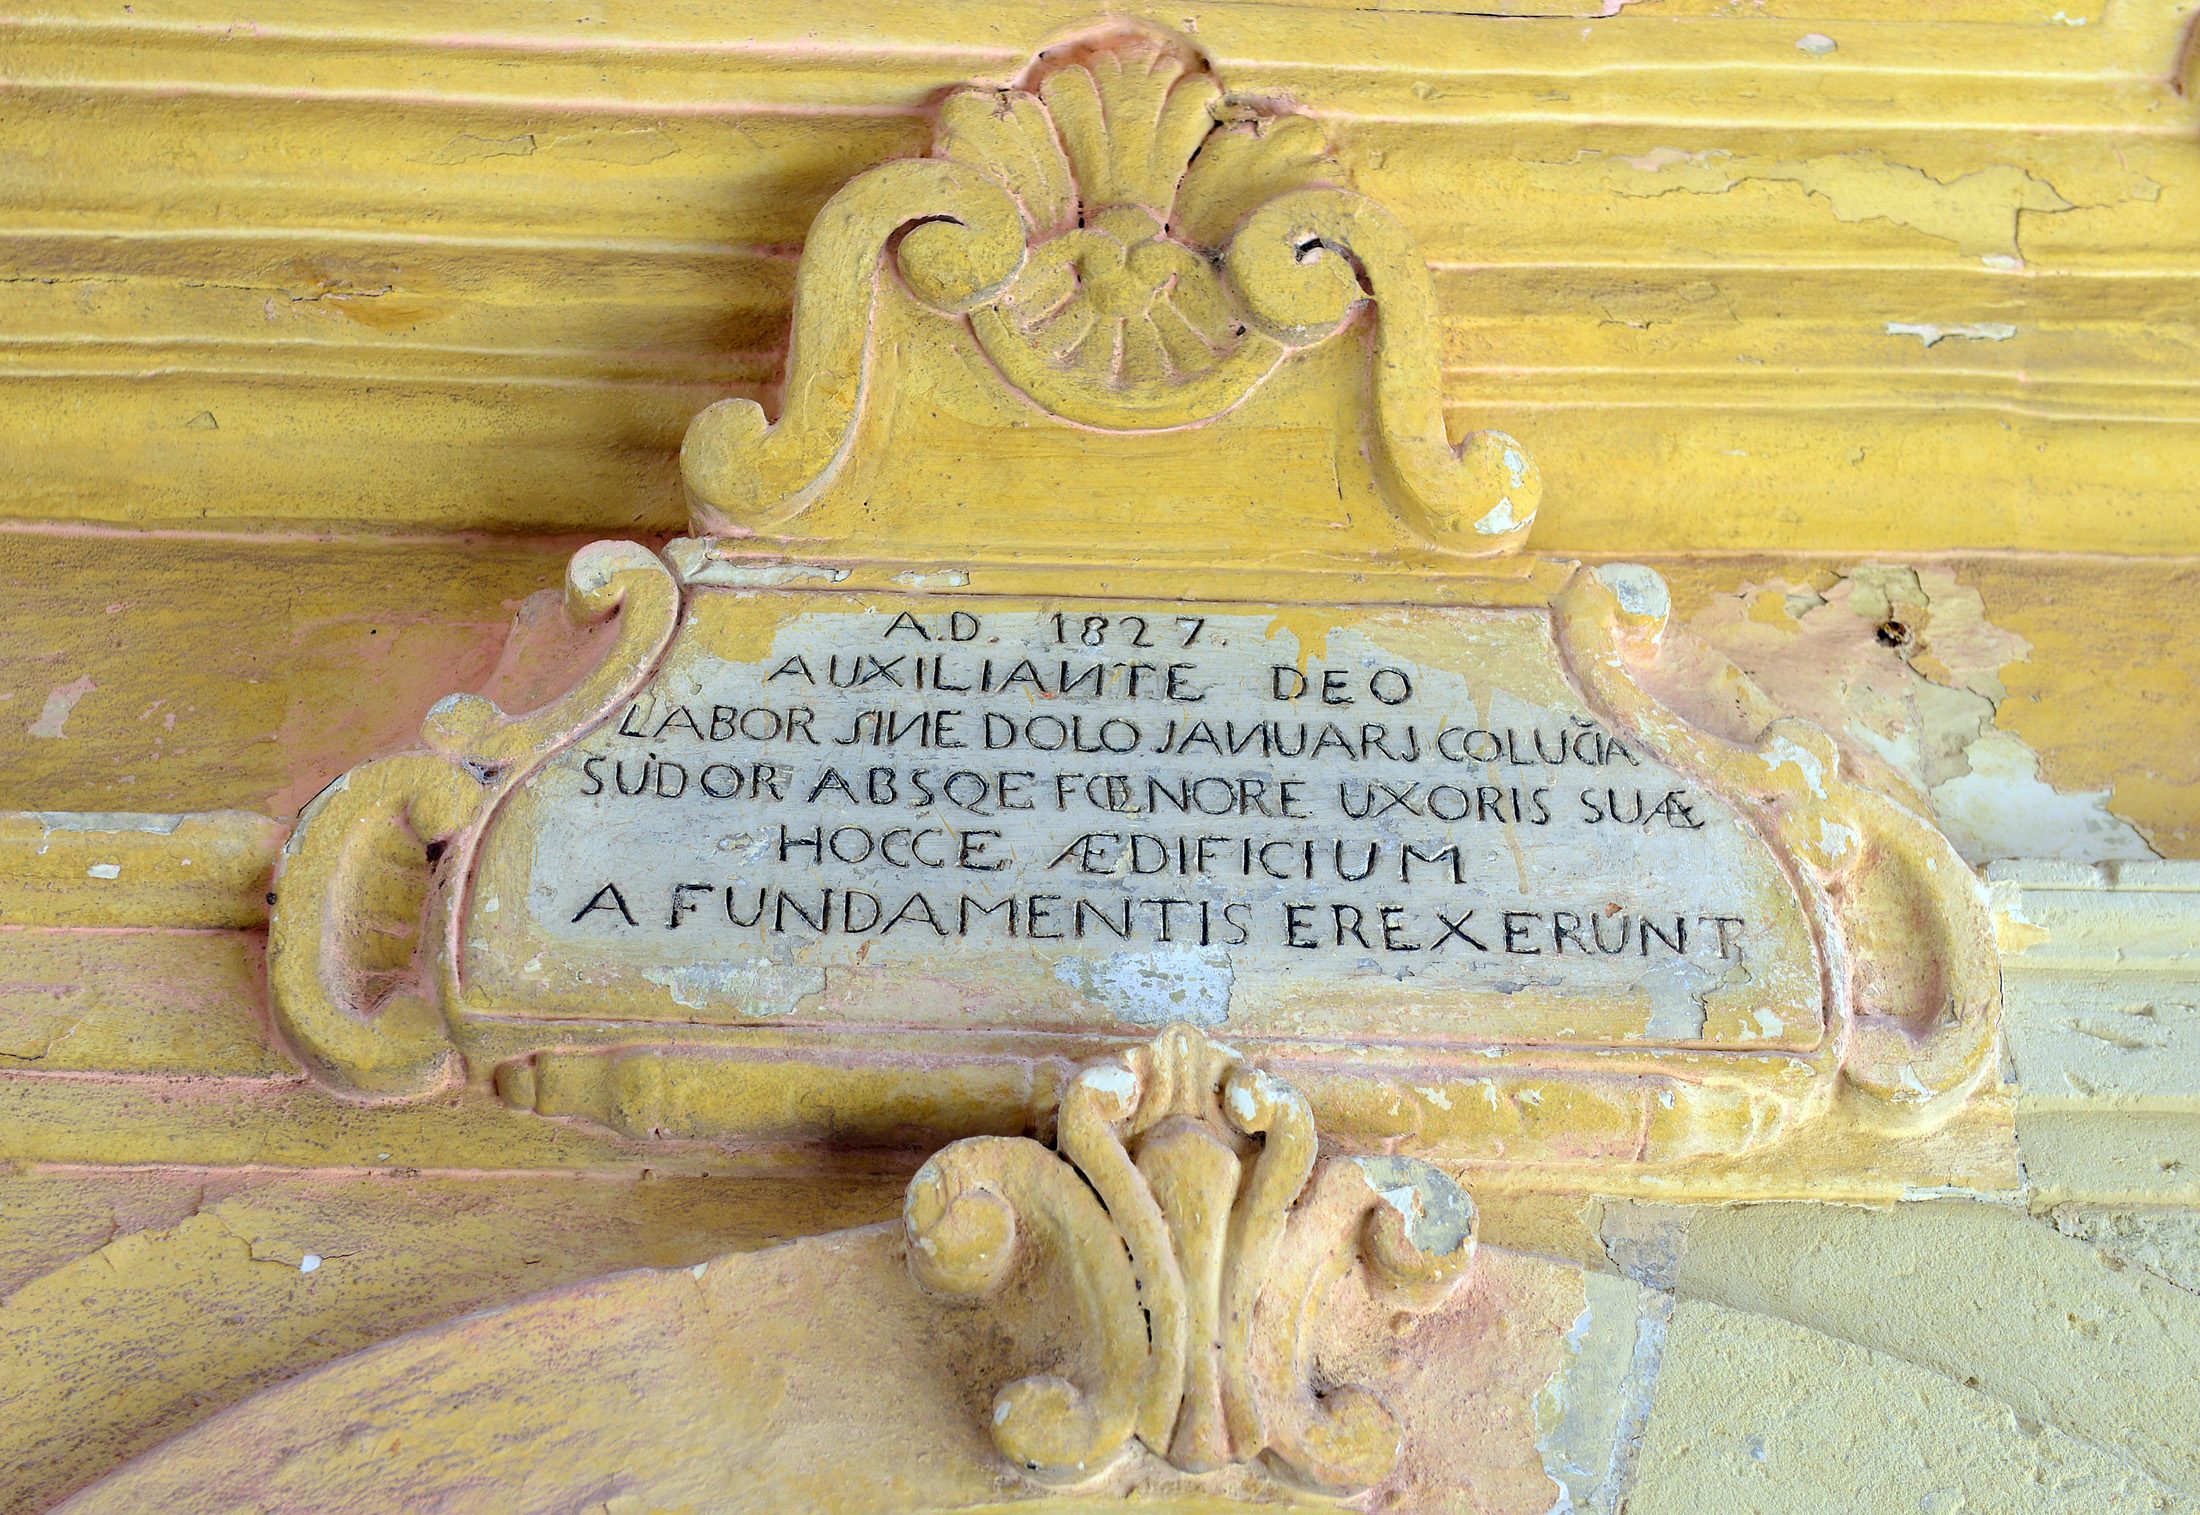 A.D. 1827.
AUXILIANTE DEO
LABOR SINE DOLO JANUARJ COLUCIA
SUDOR ABSQE FŒNORE UXORIS SUÆ
HOCCE ÆDIFICIUM
A FUNDAMENTIS EREXERUNT